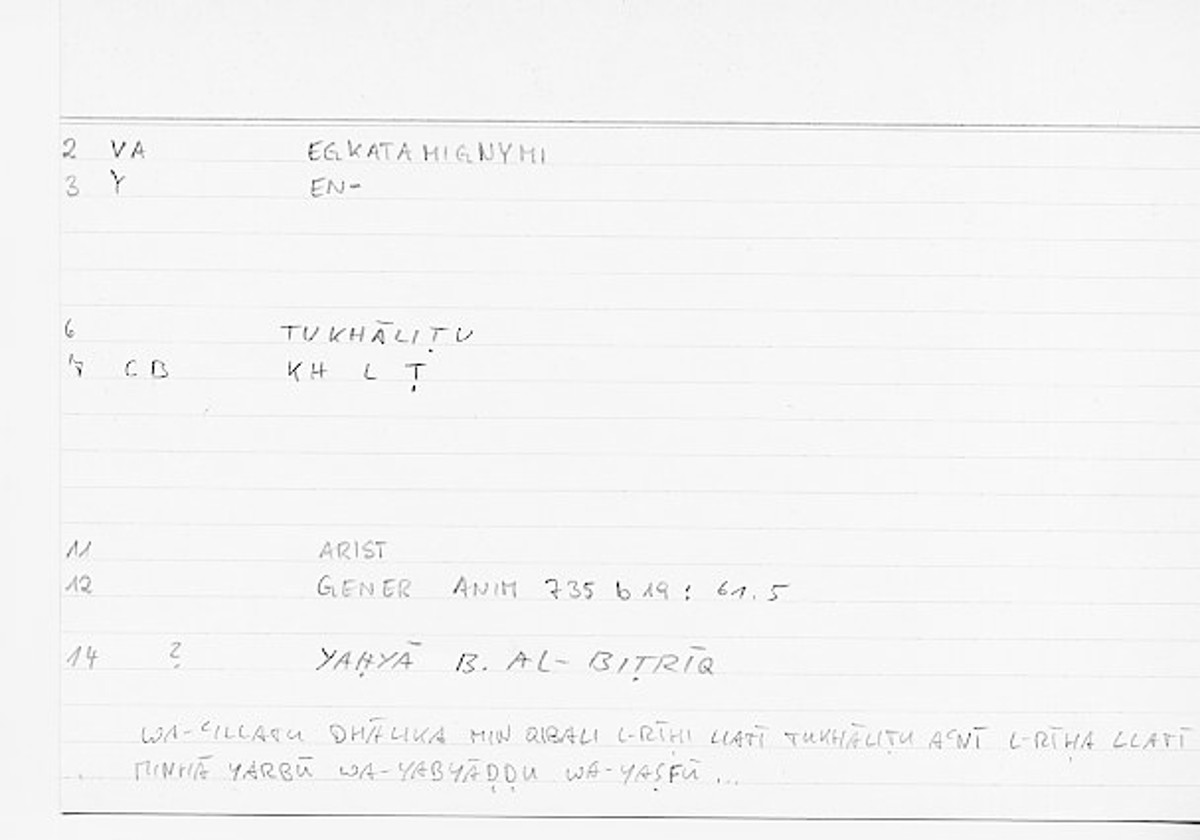 2 VA EGKATAMIGNYMI
3 Y EN-
6 TUKHĀLIṬU
7 CB KH L Ṭ
11 ARIST
12 GENER ANIM 735 b 19 : 61.5
14 ? YAḤYĀ B. AL-BIṬRĪQ
WA-ʿILLATU DHĀLIKA MIN QIBALI L-RĪḤI LLATĪ TUKHĀLIṬU AʿNĪ L-RĪḤA LLATĪ
MINHĀ YARBŪ WA-YABYĀḌḌU WA-YAṢFŪ ...